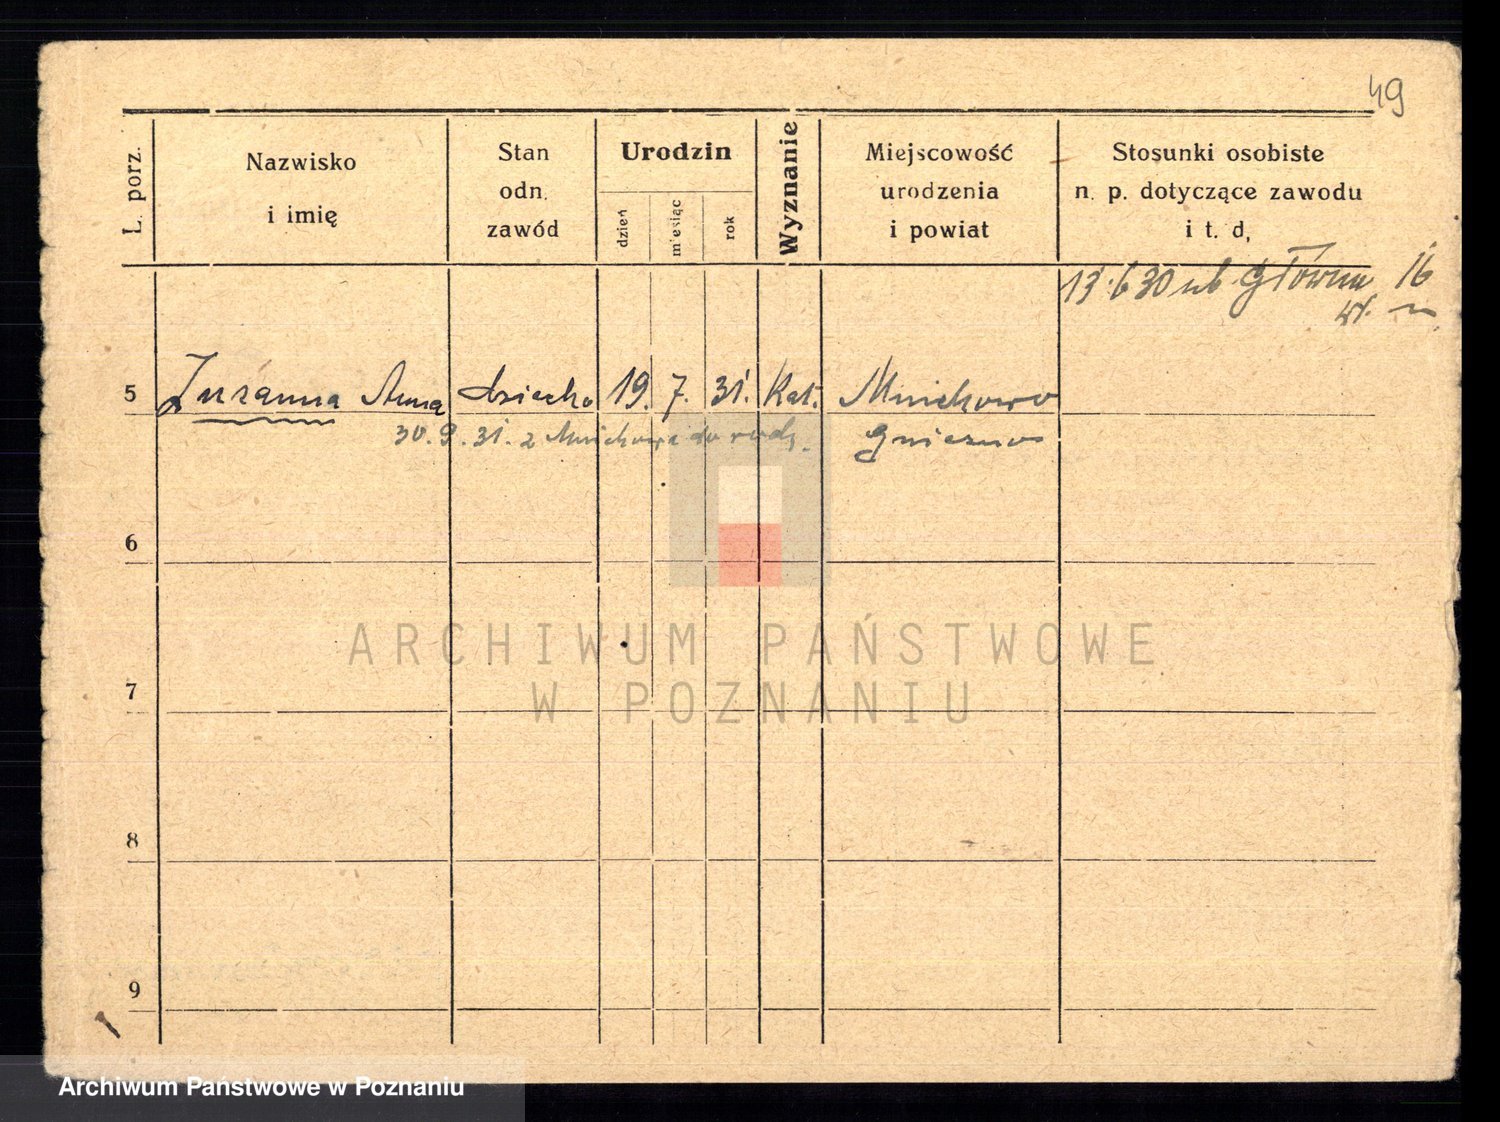 49
L. porz.
Nazwisko
i imię
Stan
odn.
zawód
Urodzin
dzień
miesiąc
rok
Wyznanie
Miejscowość
urodzenia
i powiat
Stosunki osobiste
n. p. dotyczące zawodu
i t. d.
13.6 30 ul Główna 16
5 Zuzanna Anna dziecko 19. 7. 31. Kat. Mnichowo
30. 9. 31. z Mnichowa do rodz. Gniezno
6
7
8
9
ARCHIWUM PAŃSTWOWE
W POZNANIU
Archiwum Państwowe w Poznaniu